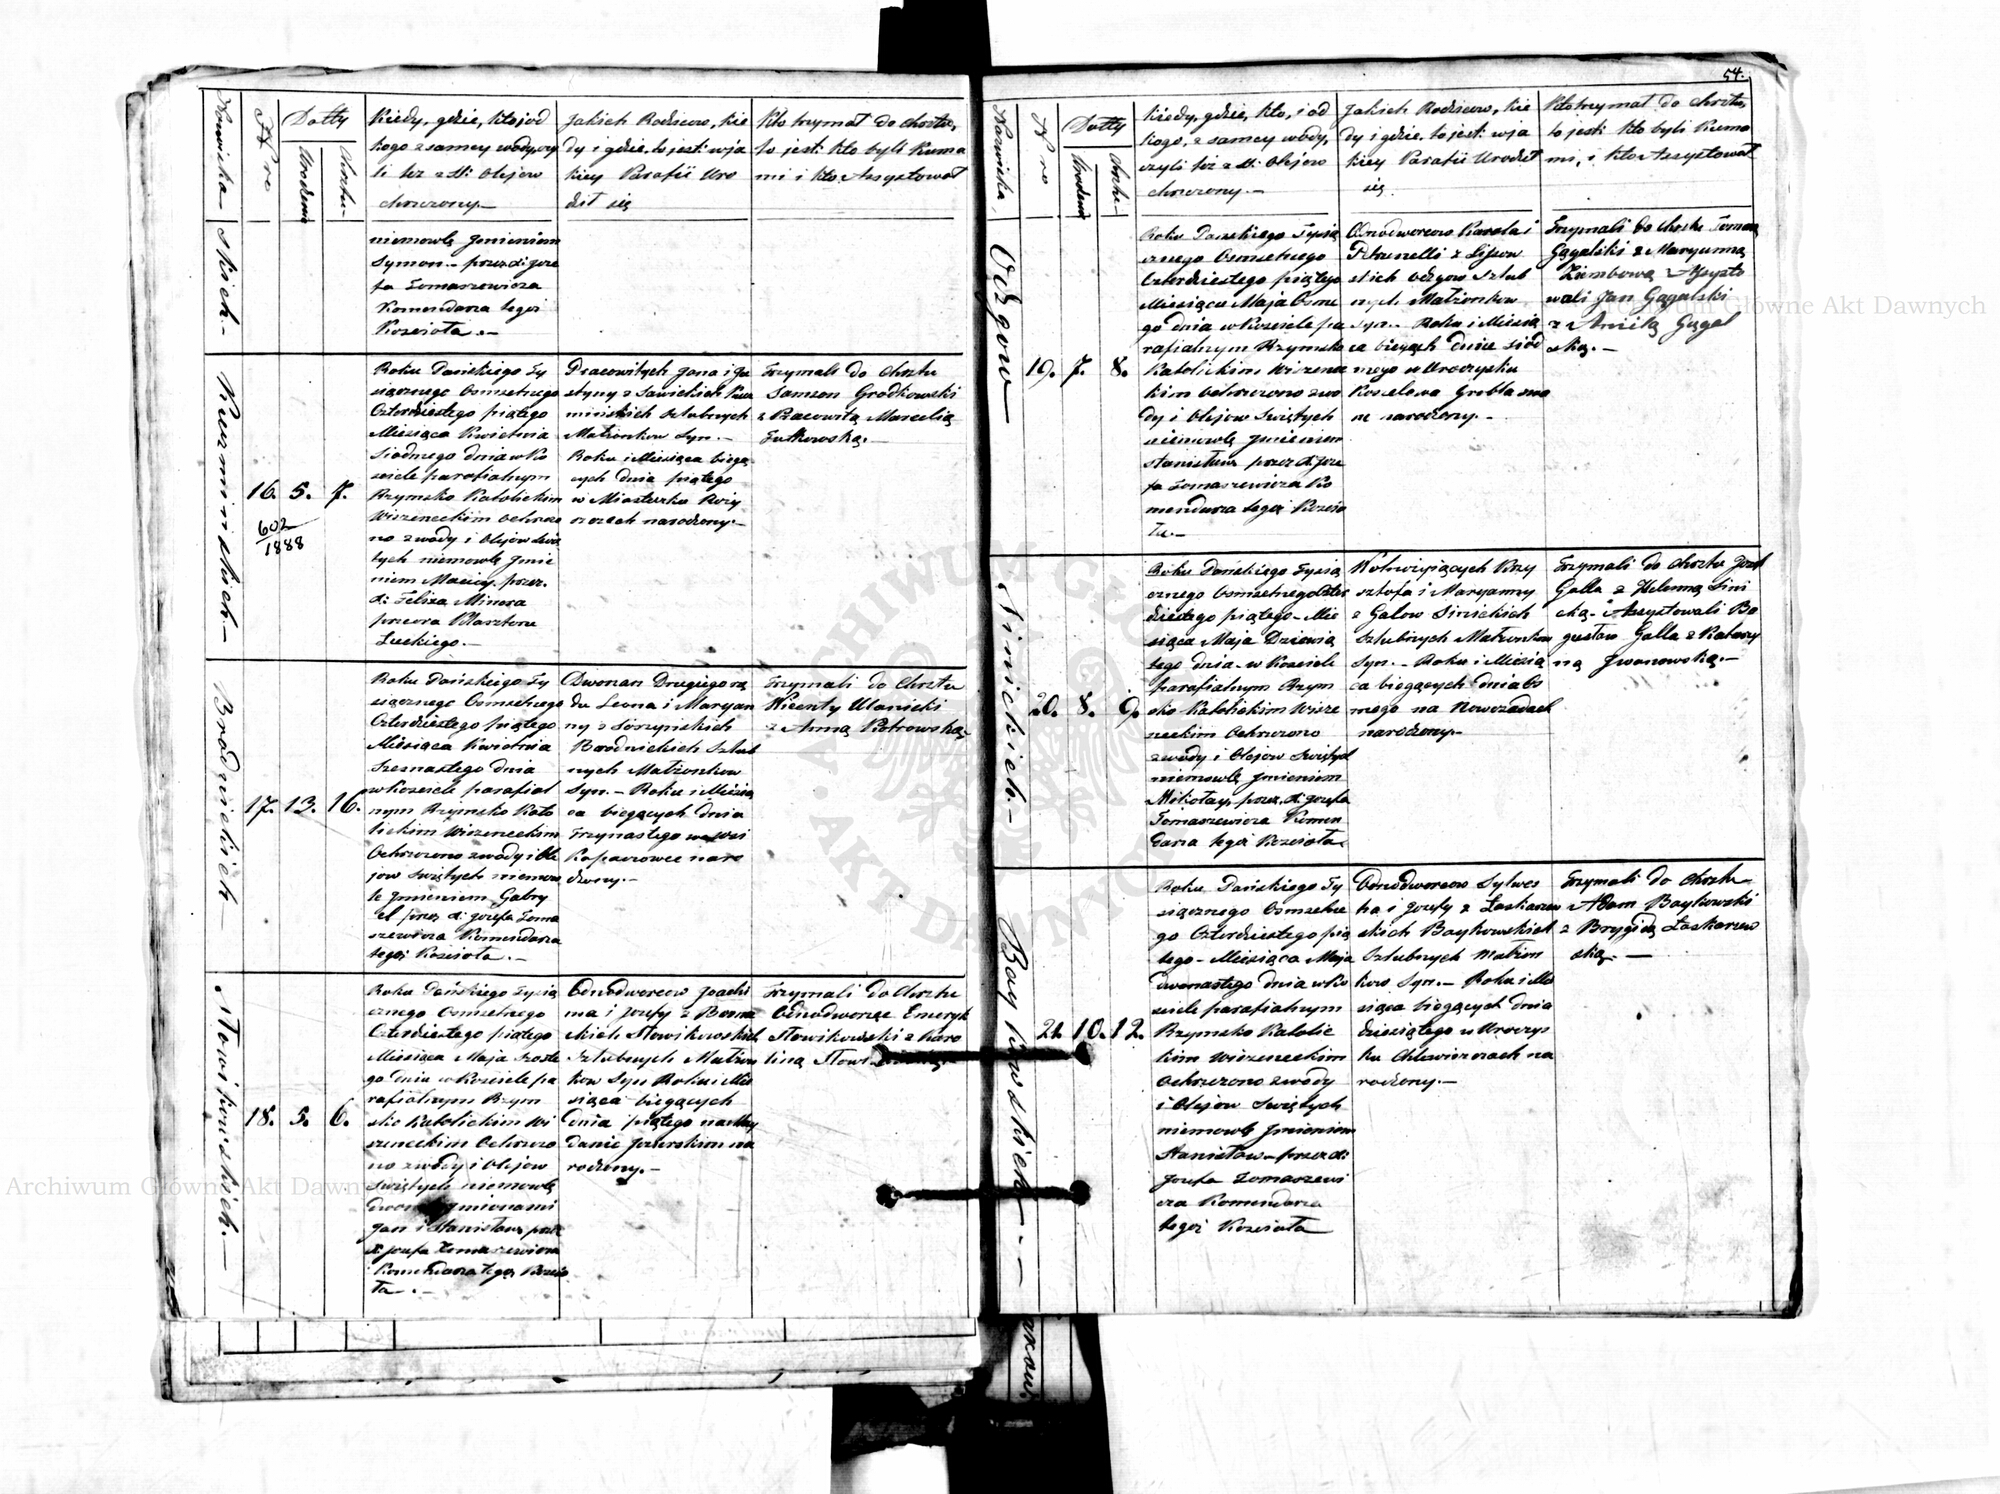 54.
Nazwiska
Nro
Datty
Urodzenia
Chrztu
Kiedy, gdzie, kto, i od
kogo z samey wody, czy
li też z SS: Olejow
chrzczony.—
Jakich Rodzicow, kie
dy i gdzie, to jest: w ja
kiey Parafii Uro
dził się
Kto trzymał do chrztu,
to jest: kto byli Kuma
mi i kto Assystował
Skich.—
niemowlę Jmieniem
Symon.— przez X: Joze
fa Tomaszewicza
Komendarza tegoż
Kościoła.—
Kuzminskich.—
16.
602/1888
5.
7.
Roku Pańskiego Ty
siącznego Osmsetnego
Czterdziestego piątego
Miesiąca Kwietnia
Siodmego dnia w Ko
ściele parafialnym
Rzymsko Katolickim
Wiszeneckim Ochrzczo
no z wody i Olejow Swię
tych niemowlę Jmie
niem Maciey, przez
X: Felixa Minora
przeora Klasztoru
Łuckiego.—
Pracowitych Jana i Ju
styny z Sawickich Kuz
mińskich Szlubnych
Małżonkow Syn.—
Roku i Miesiąca bieżą
cych dnia piątego
w Miasteczku Roży
szczach narodzony.—
Trzymali do Chrztu
Samson Grodkowski
z Pracowitą Marcelią
Jutkowską.—
Brodnickich—
17.
13.
16.
Roku Pańskiego Ty
siącznego Osmsetnego
Czterdziestego piątego
Miesiąca Kwietnia
Szesnastego dnia
w Kościele parafial
nym Rzymsko Kato
lickim Wiszeneckim
Ochrzczono z wody i Ole
jow Swiętych niemow
le Jmieniem Gabry
el przez X: Jozefa Toma
szewicza Komendarza
tegoż Kościoła.—
Dworzan Drugiego rzę
du Leona i Maryan
ny z Gorzyńskich
Brodnickich Szlub
nych Małżonkow
Syn.— Roku i Miesią
ca bieżących dnia
Trzynastego we Wsi
Kopaczowce naro
dzony.—
Trzymali do Chrztu
Wicenty Ulanicki
z Anną Piotrowską.
Słowikowskich.—
18.
5.
6.
Roku Pańskiego Tysią
cznego Osmsetnego
Czterdziestego piątego
Miesiąca Maja Szoste
go dnia w Kościele pa
rafialnym Rzym
sko Katolickim Wi
szeneckim Ochrzczo
no z wody i Olejow
Swiętych niemowlę
Jmionami
Jan i Stanisław, przez
X: Jozefa Tomaszewicza
Komendarza tegoż Kościo
ła.—
Odnodworcow Joachi
ma i Jozefy z
skich Słowikowskich
Szlubnych Małżon
kow Syn Roku i Mie
siąca bieżących
dnia piątego na May
danie Jezierskim na
rodzony.—
Trzymali do Chrztu
Odnodworzec Emeryk
Słowikowski z Karo
liną
Nazwiska
Nro
Datty
Urodzenia
Chrztu
Kiedy, gdzie, kto, i od
kogo, z samey wody,
czyli też z SS: Olejow
chrzczony.—
Jakich Rodzicow, kie
dy i gdzie, to jest: w ja
kiey Parafii Urodził
się
Kto trzymał do chrztu,
to jest: kto byli Kuma
mi, i kto Assystował
Ożgow—
19.
7.
8.
Roku Pańskiego Tysią
cznego Osmsetnego
Czterdziestego piątego
Miesiąca Maja Osme
go dnia w Kościele pa
rafialnym Rzymsko
Katolickim Wiszenec
kim Ochrzczono z wo
dy i Olejow Swiętych
niemowlę Jmieniem
Stanisław przez X: Joze
fa Tomaszewicza Ko
mendarza tegoż Kościo
ła.—
Odnodworcow Karola i
Petrunelli z Lisow
skich Ożgow Szlub
nych Małżonkow
Syn.— Roku i Miesią
ca bieżących dnia siod
mego w Uroczysku
Koscelowa Grobla
narodzony.—
Trzymali do Chrztu Tomasz
Gągalski z Maryanną
Ziembową Assysto
wali Jan Gągalski
z Anielą Gągal
ską.—
Sinickich.—
20.
8.
9.
Roku Pańskiego Tysią
cznego Osmsetnego Czter
dziestego piątego— Mie
siąca Maja Dziewią
tego dnia— w Kościele
parafialnym Rzym
sko Katolickim Wisze
neckim Ochrzczono
z wody i Olejow Swiętych
niemowlę Jmieniem
Mikołay, przez X: Jozefa
Tomaszewicza Komen
darza tegoż Kościoła.
Wolnożyjących Krzy
sztofa i Maryanny
z Galow Sinickich
Szlubnych Małżonkow
Syn.— Roku i Miesią
ca bieżących dnia Os
mego na Nowosadach
narodzony.—
Trzymali do Chrztu Jozef
Galla z Helenną Sini
cką.— Assystowali Bo
gusław Galla z Katarzy
ną Jwanowską.—
Baykowskich — —
21.
10.
12.
Roku Pańskiego Ty
siącznego Osmsetne
go Czterdziestego pią
tego— Miesiąca Maja
dwunastego dnia w Ko
ściele parafialnym
Rzymsko Katolic
kim Wiszeneckim
Ochrzczono z wody
i Olejow Swiętych
niemowlę Jmieniem
Stanisław— przez X:
Jozefa Tomaszewi
cza Komendarza
tegoż Kościoła
Odnodworcow Sylwes
tra i Jozefy z Łaskarzew
skich Baykowskich
Szlubnych Małżon
kow Syn.— Roku i Mie
siąca bieżących dnia
dziesiątego w Uroczys
ku Chławiszczach na
rodzony.—
Trzymali do Chrztu—
Adam Baykowski
z Brygidą Łaskarzew
ską.—
Archiwum Główne Akt Dawnych
Archiwum Główne Akt Dawnych
ARCHIWUM GŁÓWNE AKT DAWNYCH